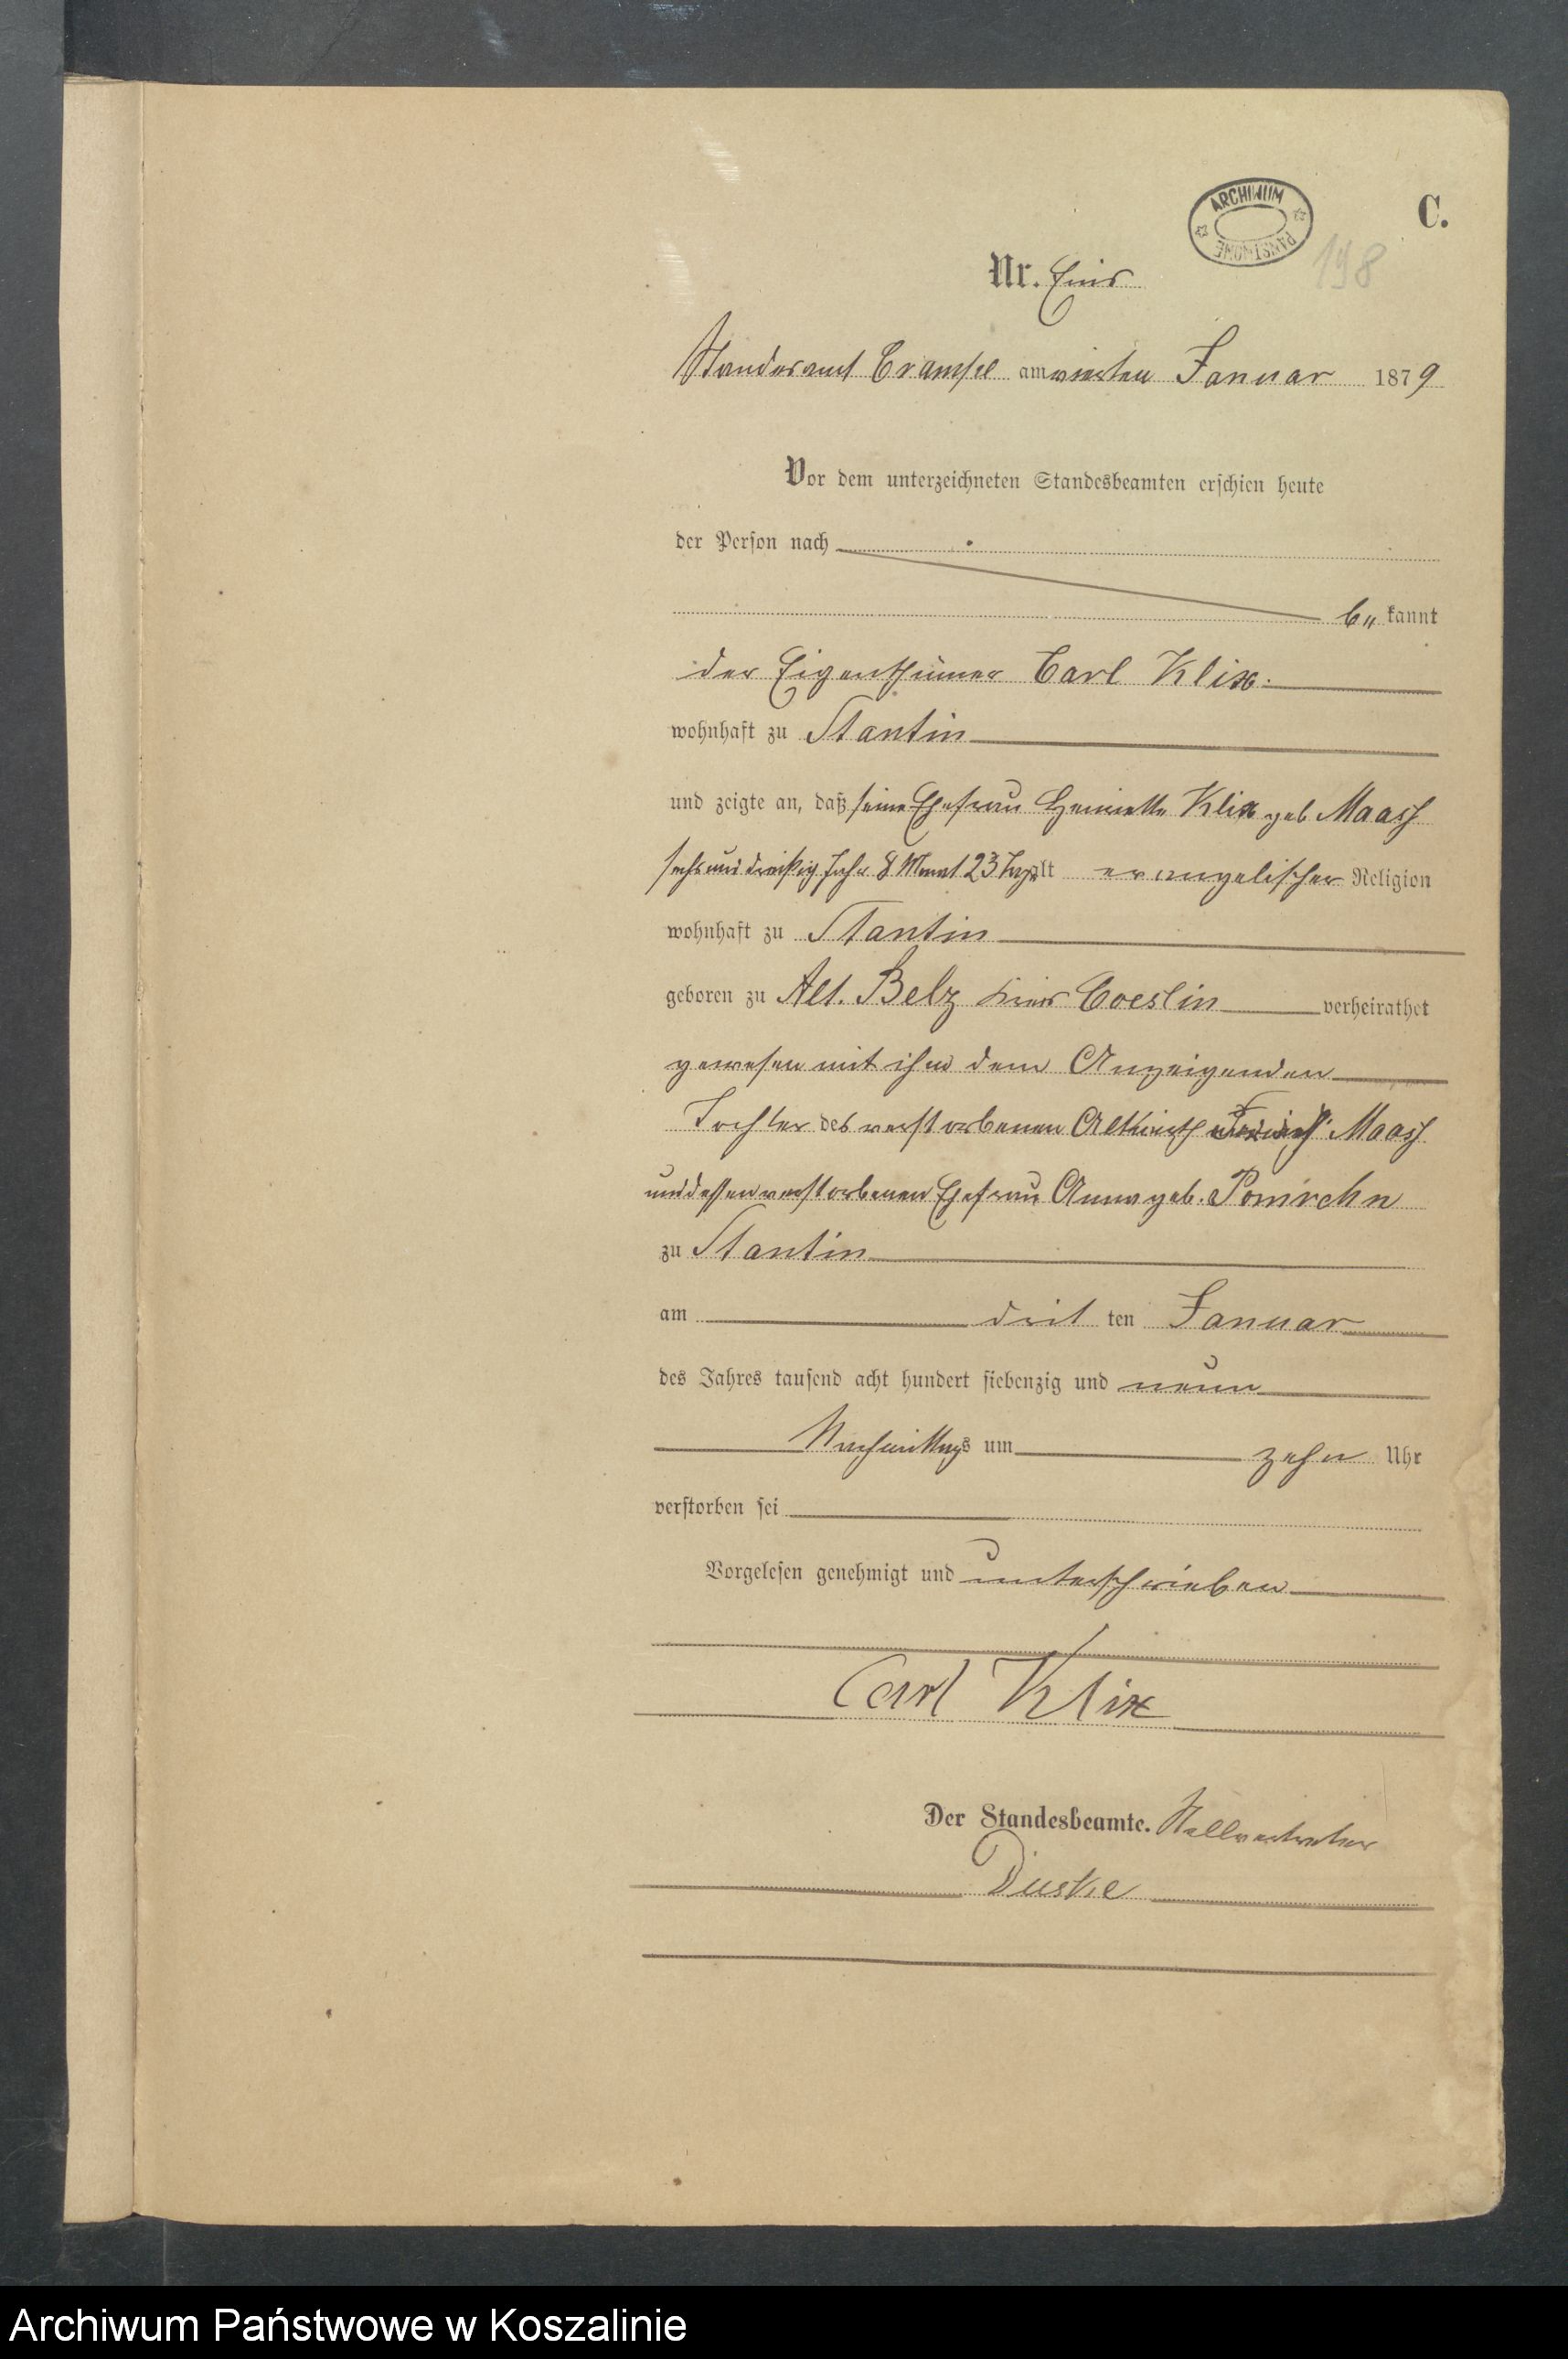 ARCHIWUM PAŃSTWOWE
C.
198
Nr. Eins
Standesamt Crampe am vierten Januar 1879
Vor dem unterzeichneten Standesbeamten erschien heute
der Person nach
be kannt
der Eigenthümer Carl Klix.
wohnhaft zu Stantin
und zeigte an, daß seine Ehefrau Henriette Klix geb Maass
sechs und dreißig Jahr 8 Monat 23 Tage alt evangelischer Religion
wohnhaft zu Stantin
geboren zu Alt. Belz Kreis Coeslin verheirathet
gewesen mit ihm dem Anzeigenden
Tochter des verstorbenen Altsitzer Maass
und dessen verstorbenen Ehefrau Anna geb.
zu Stantin
am drit ten Januar
des Jahres tausend acht hundert siebenzig und neun
Nachmittags um zehn Uhr
verstorben sei
Vorgelesen genehmigt und unterschrieben
Carl Klix
Der Standesbeamte. Stellvertreter
Duske
Archiwum Państwowe w Koszalinie